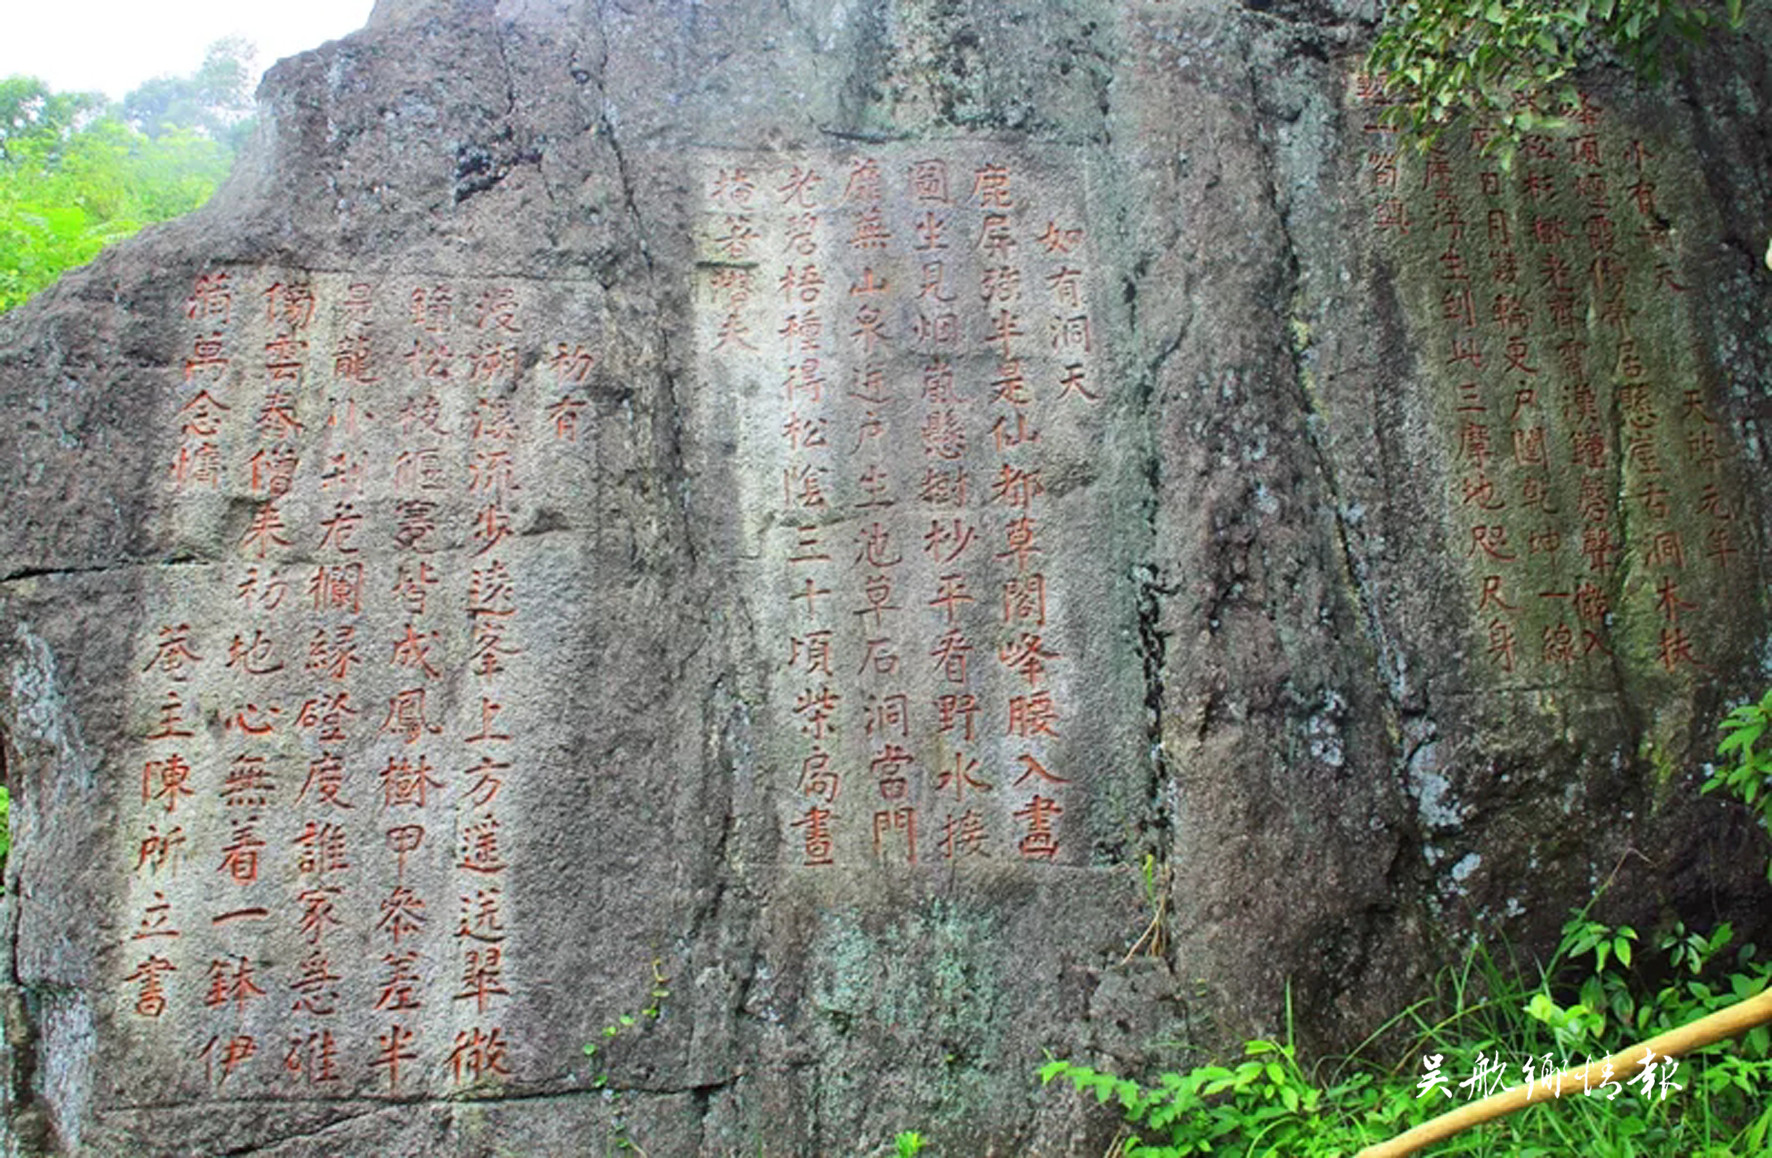 天啓元年
小有洞天
居懸崖古洞木扶
峰頂煙霞
漢鐘磬聲微入
松杉
老
乾坤一線
日月雙輪更戶闔
浮生到此三摩地咫尺身
如有洞天
鹿屏強半是仙都草閣峰腰入畫
圖坐見烟嵐懸樹杪平看野水接
蘼蕪山泉近戶生池草石洞當門
老碧梧種得松陰三十頃柴扃晝
掩著潛夫
初有
漫溯溪流步遶峯上方遥送翠微
鐘松枝偃蹇皆成鳳樹甲參差半
是龍小刹危欄緣磴度誰家急碓
傍雲舂僧來初地心無着一鉢伊
蒲萬念慵
菴主陳所立書
吴航鄉情報